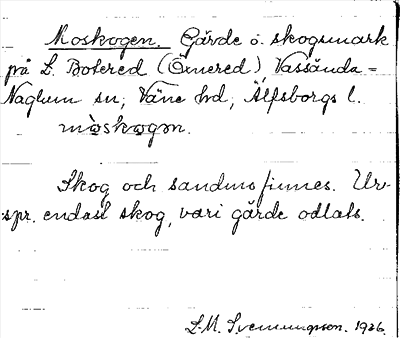 Moskogen. Gärde o. skogsmark
på L. Botered (Örnered), Vassända-
Naglum sn; Väne hd, Älfsborgs l.
mòskογən.
Skog och sandmo finnes. Ur-
spr. endast skog, vari gärde odlats.
S.M. Svenungsson. 1926.